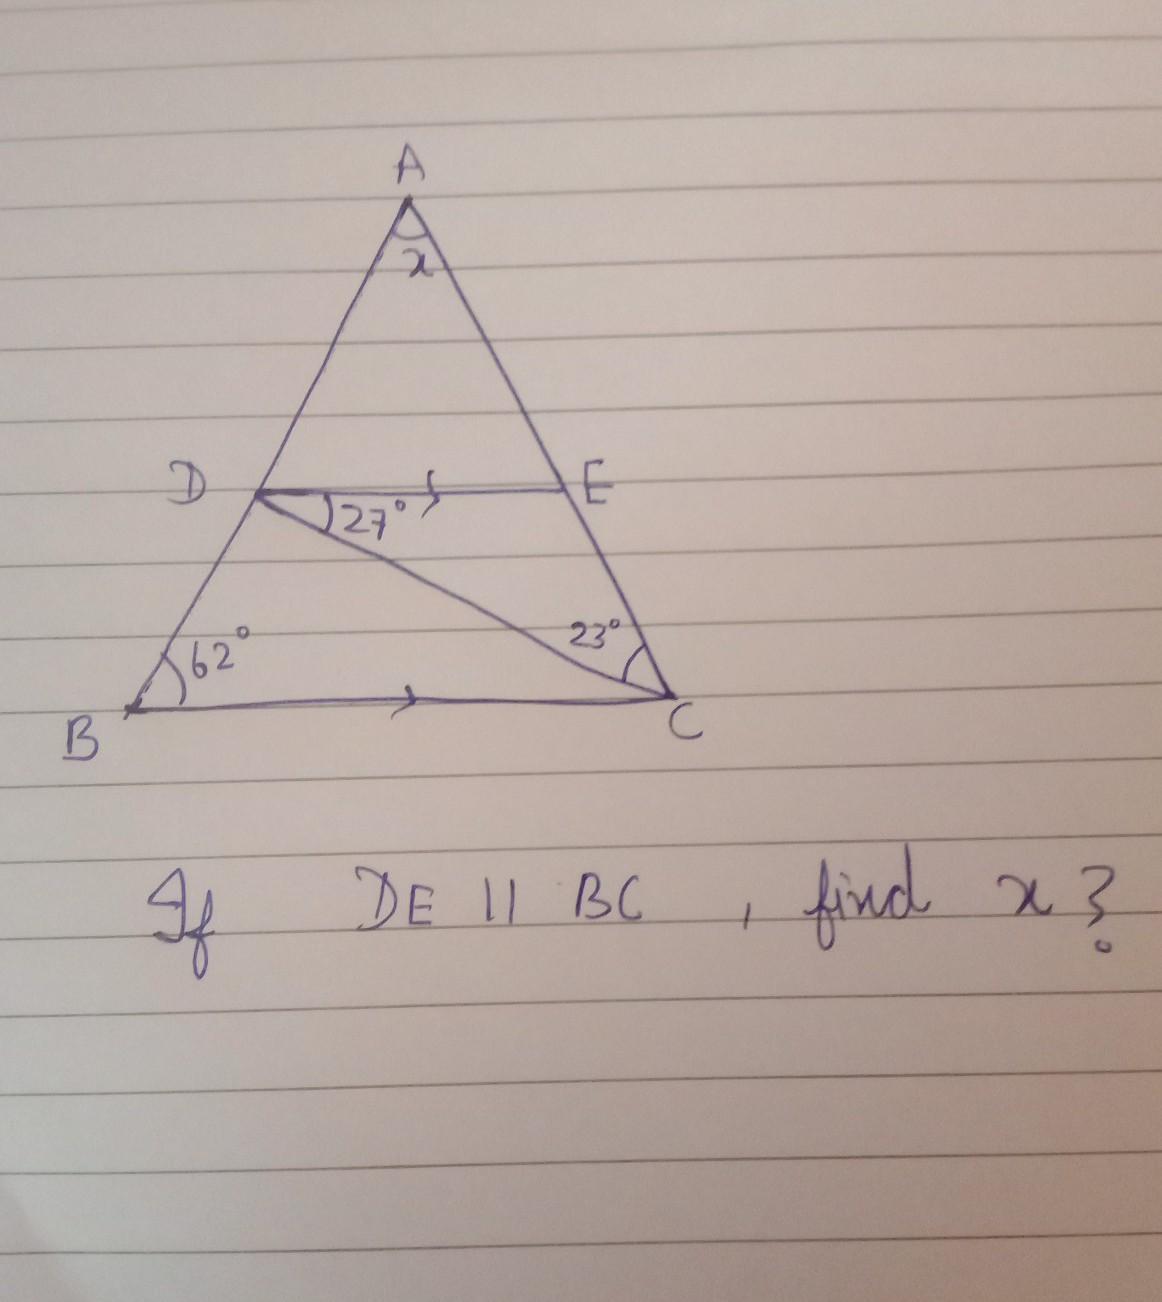 A
x
D
E
27°
23°
62°
B
C
If DE || BC , find x?